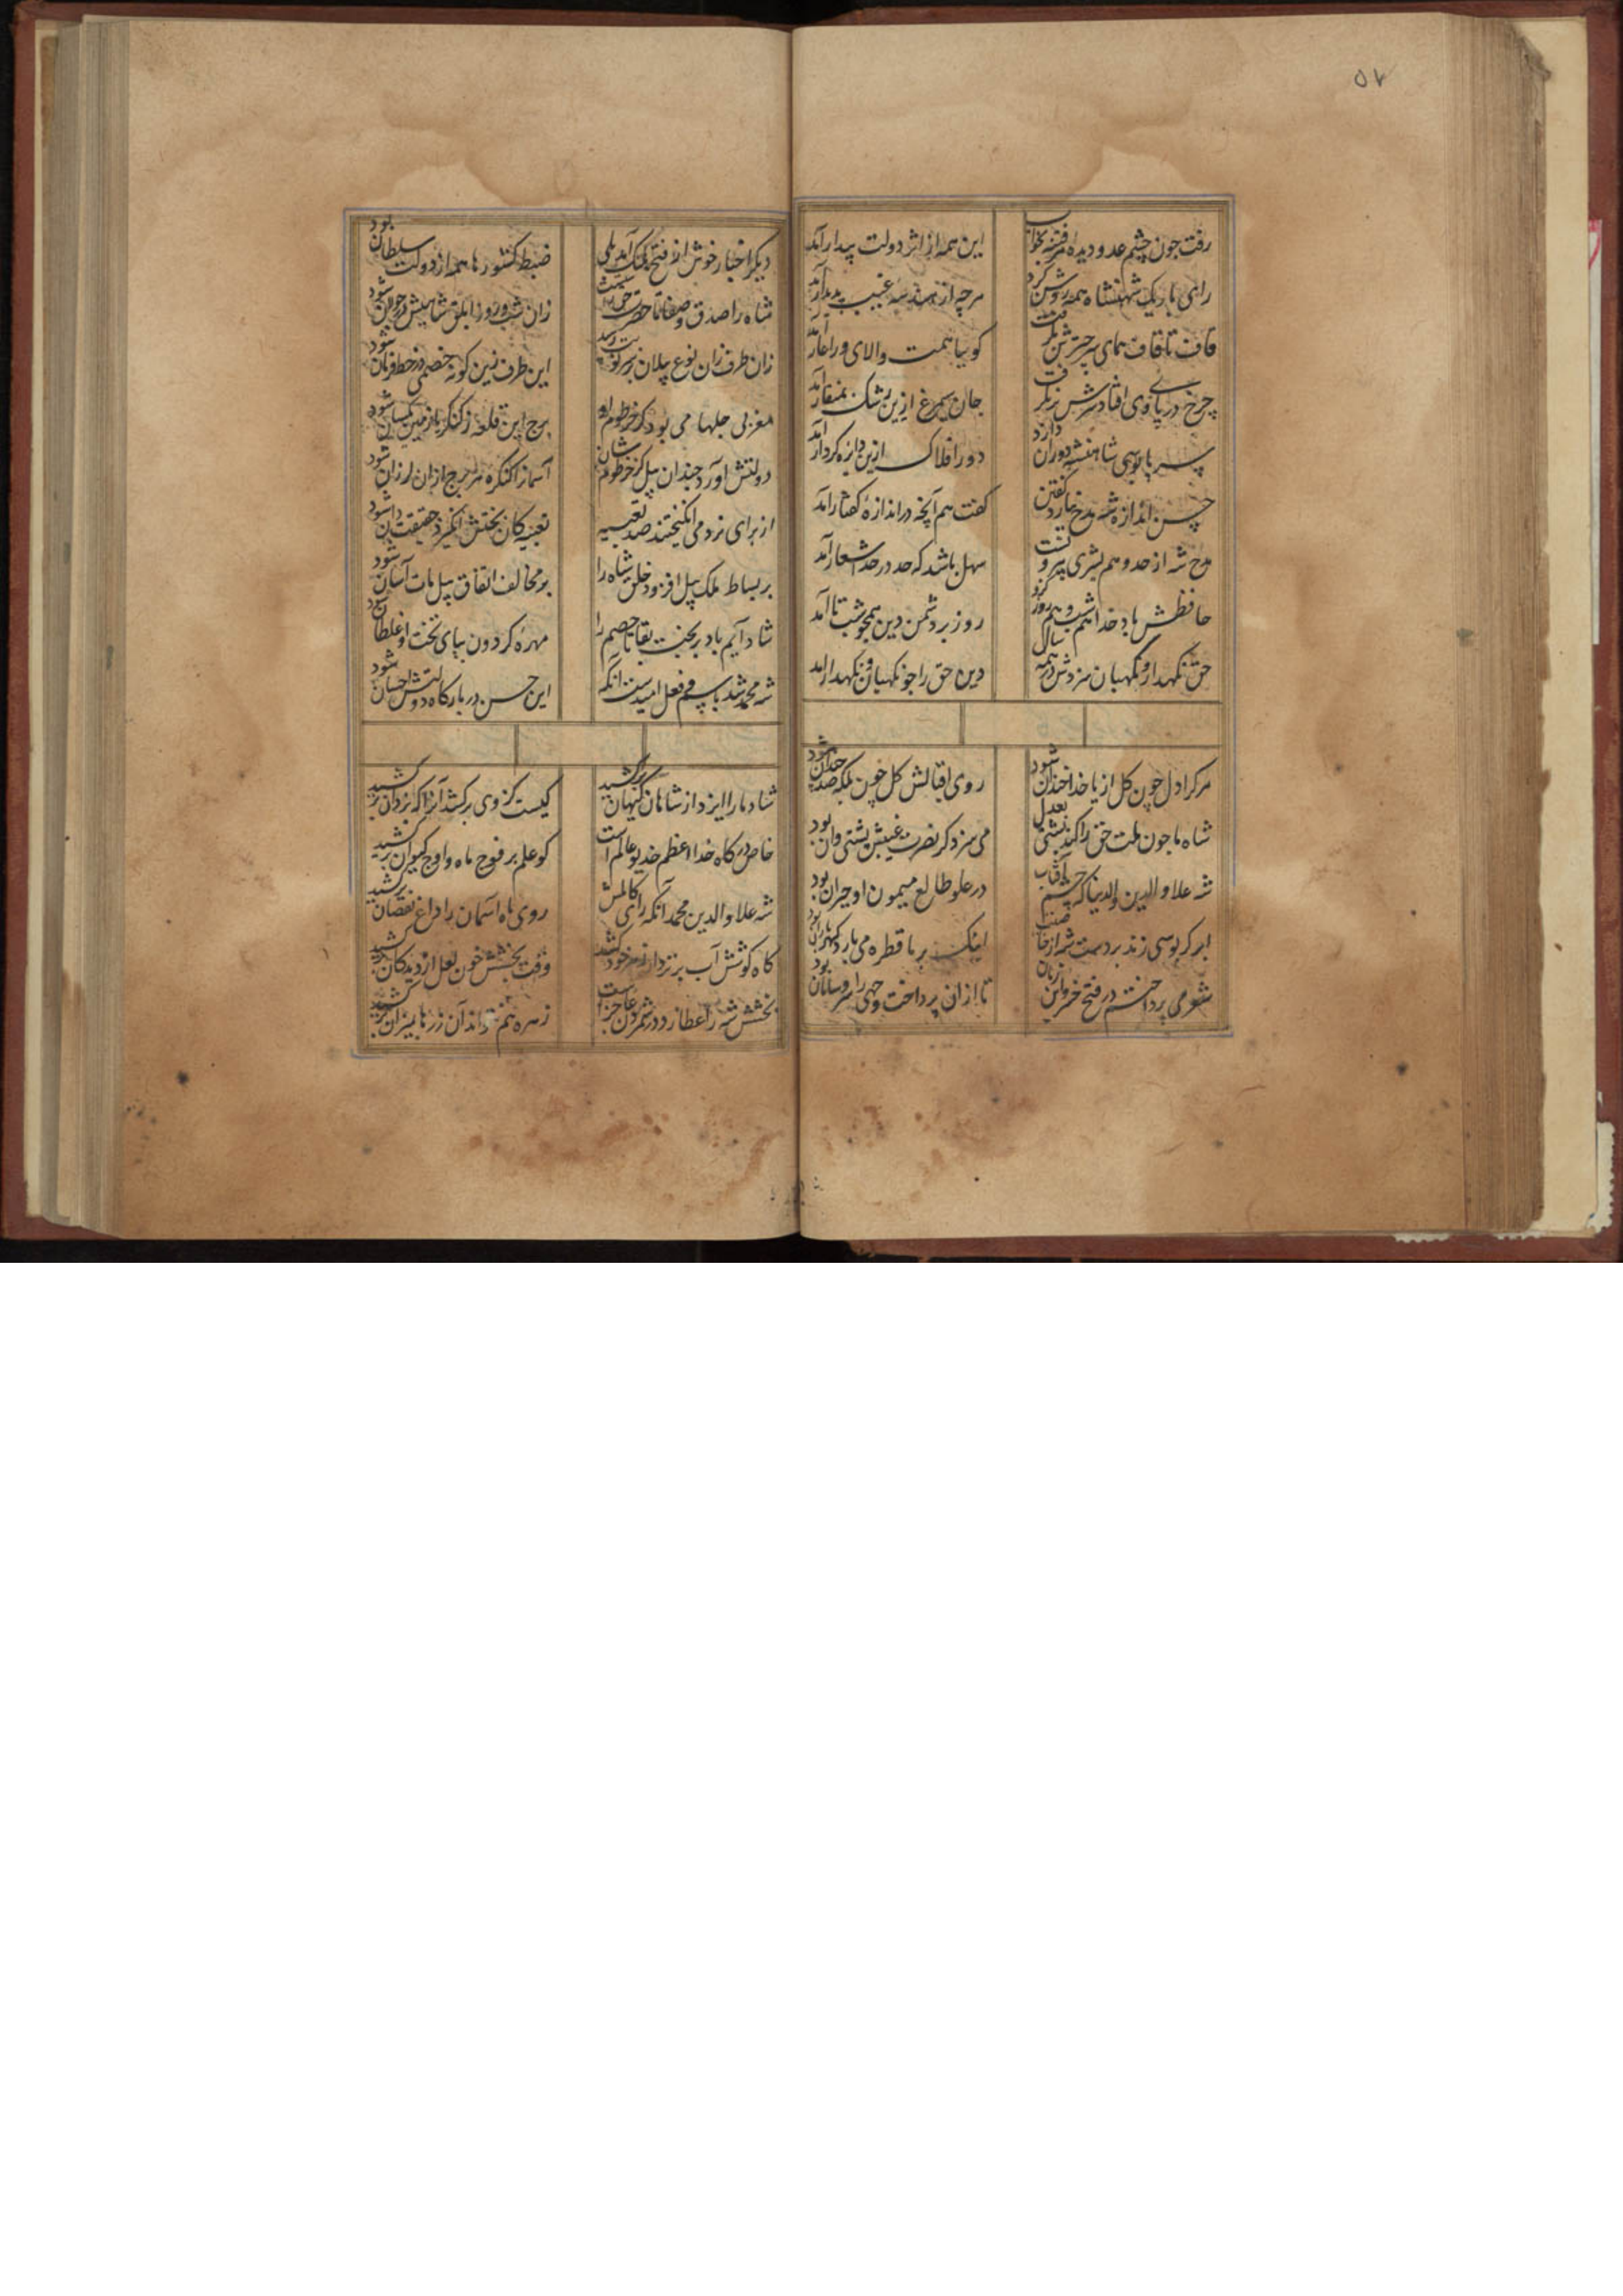 ۵۷
رفت چون چشم عدو دیده هر فتنه بخواب
این همه از اثر دولت بیدار آمد
رای باریک شهنشاه همه روشن کرد
هرچه از هندسه غیب پدیدار آمد
قاف تا قاف همای سر چترش بگرفت
کوییا همت والای ورا عار آمد
چرخ در پای وی افتاد سرش
جان سیمرغ ازین رشک بمنقار آمد
پابوسی شاهنشه دوران دارد
دور افلاک ازین دایره کردار آمد
حسن اندازه شه مدح نیارد گفتن
گفت هم آنچه در اندازه گفتار آمد
مدح شه از حد وهم بشری بیرونست
سهل باشد که حد در حد اشعار آمد
حافظش باد خدا هم شب و هم روز کزو
روز بر دشمن دین همچو شب تار آمد
حق نگهدار و نگهبان سزدش در همه سال
دین حق را چو نگهبان و نگهدار آمد
هرکرا دل چون گل از یاد خدا خندان شود
روی اقبالش گل خون بلکه صد چندان شود
شاه ما چون ملت حق را کند پشتی بعدل
می سزد کر نصرت غیبش پشتی وان بود
شه علاو الدین والدنیا که چشم آفتاب
در علو طالع میمون او حیران بود
ابر کر بوسی زند بر دست شه از خاصیت
اینک بر ما قطره می بارد گهر باران بود
شعر می پرداختم در فتح خسرو این زمان
تا ازان پرداخت وجهی را سر و سامان بود
دیگر اخبار خوش از فتح آمد بلی
ضبط کشورها همه از دولت سلطان بود
شاه را صدق و صفا تا حضرت حق
زان شب و روز ابلق شاهیش در جولان شود
زان طرف زان نوع پیلان
این طرف زین گونه خصمی در خط فرمان شود
مغربی جلها می بود کز خرطوم او
برج این قلعه ز کنگر با زمین یکسان شود
دولتش آورد چندان پیل کز خرطوم شان
آسمانرا کنگره هر برج ازان لرزان شود
از برای نرد می انگیختند صد تعبیه
تعبیه کان بختش انگیزد حقیقت آن شود
بر بساط ملک پیل افزود خلق شاه را
بو مخالف اتفاق پیل مات آسان شود
شاد آیم باد بر بخت بقا تا خصم را
مهره گردون بپای تخت او غلطان شود
شه محمد شد باسم و فعل امیدست آنکه
این حسن در بارگاه دولتش احسان شود
شاه ما را ایزد از شاهان گیهان برکشید
کیست کز وی برکشد آنرا که یزدان برکشید
خاص درگاه خدا اعظم خدیو عالم است
کو علم بر فوج ماه و اوج کیوان برکشید
شه علاو الدین محمد آنکه رای کاملش
روی ماه آسمان را داغ نقصان برکشید
گاه کوشش آب بر نزد از خود کشید
وقت بخشش خون لعل از دیده کان برکشید
بخشش شه را عطارد در شمردن عاجز است
زهره هم نتواند آن زرها بمیزان برکشید